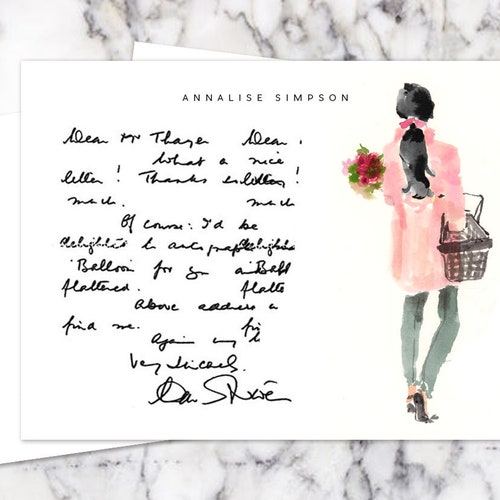 ANNALISE SIMPSON
Dear Mr Thayer Dear
What a nice
letter! Thanks so
much. much
Of course I'd be
delighted to autograph
"Balloon" for you
flattered. flatte
Above address
find me. fi
Again my
Very sincerely